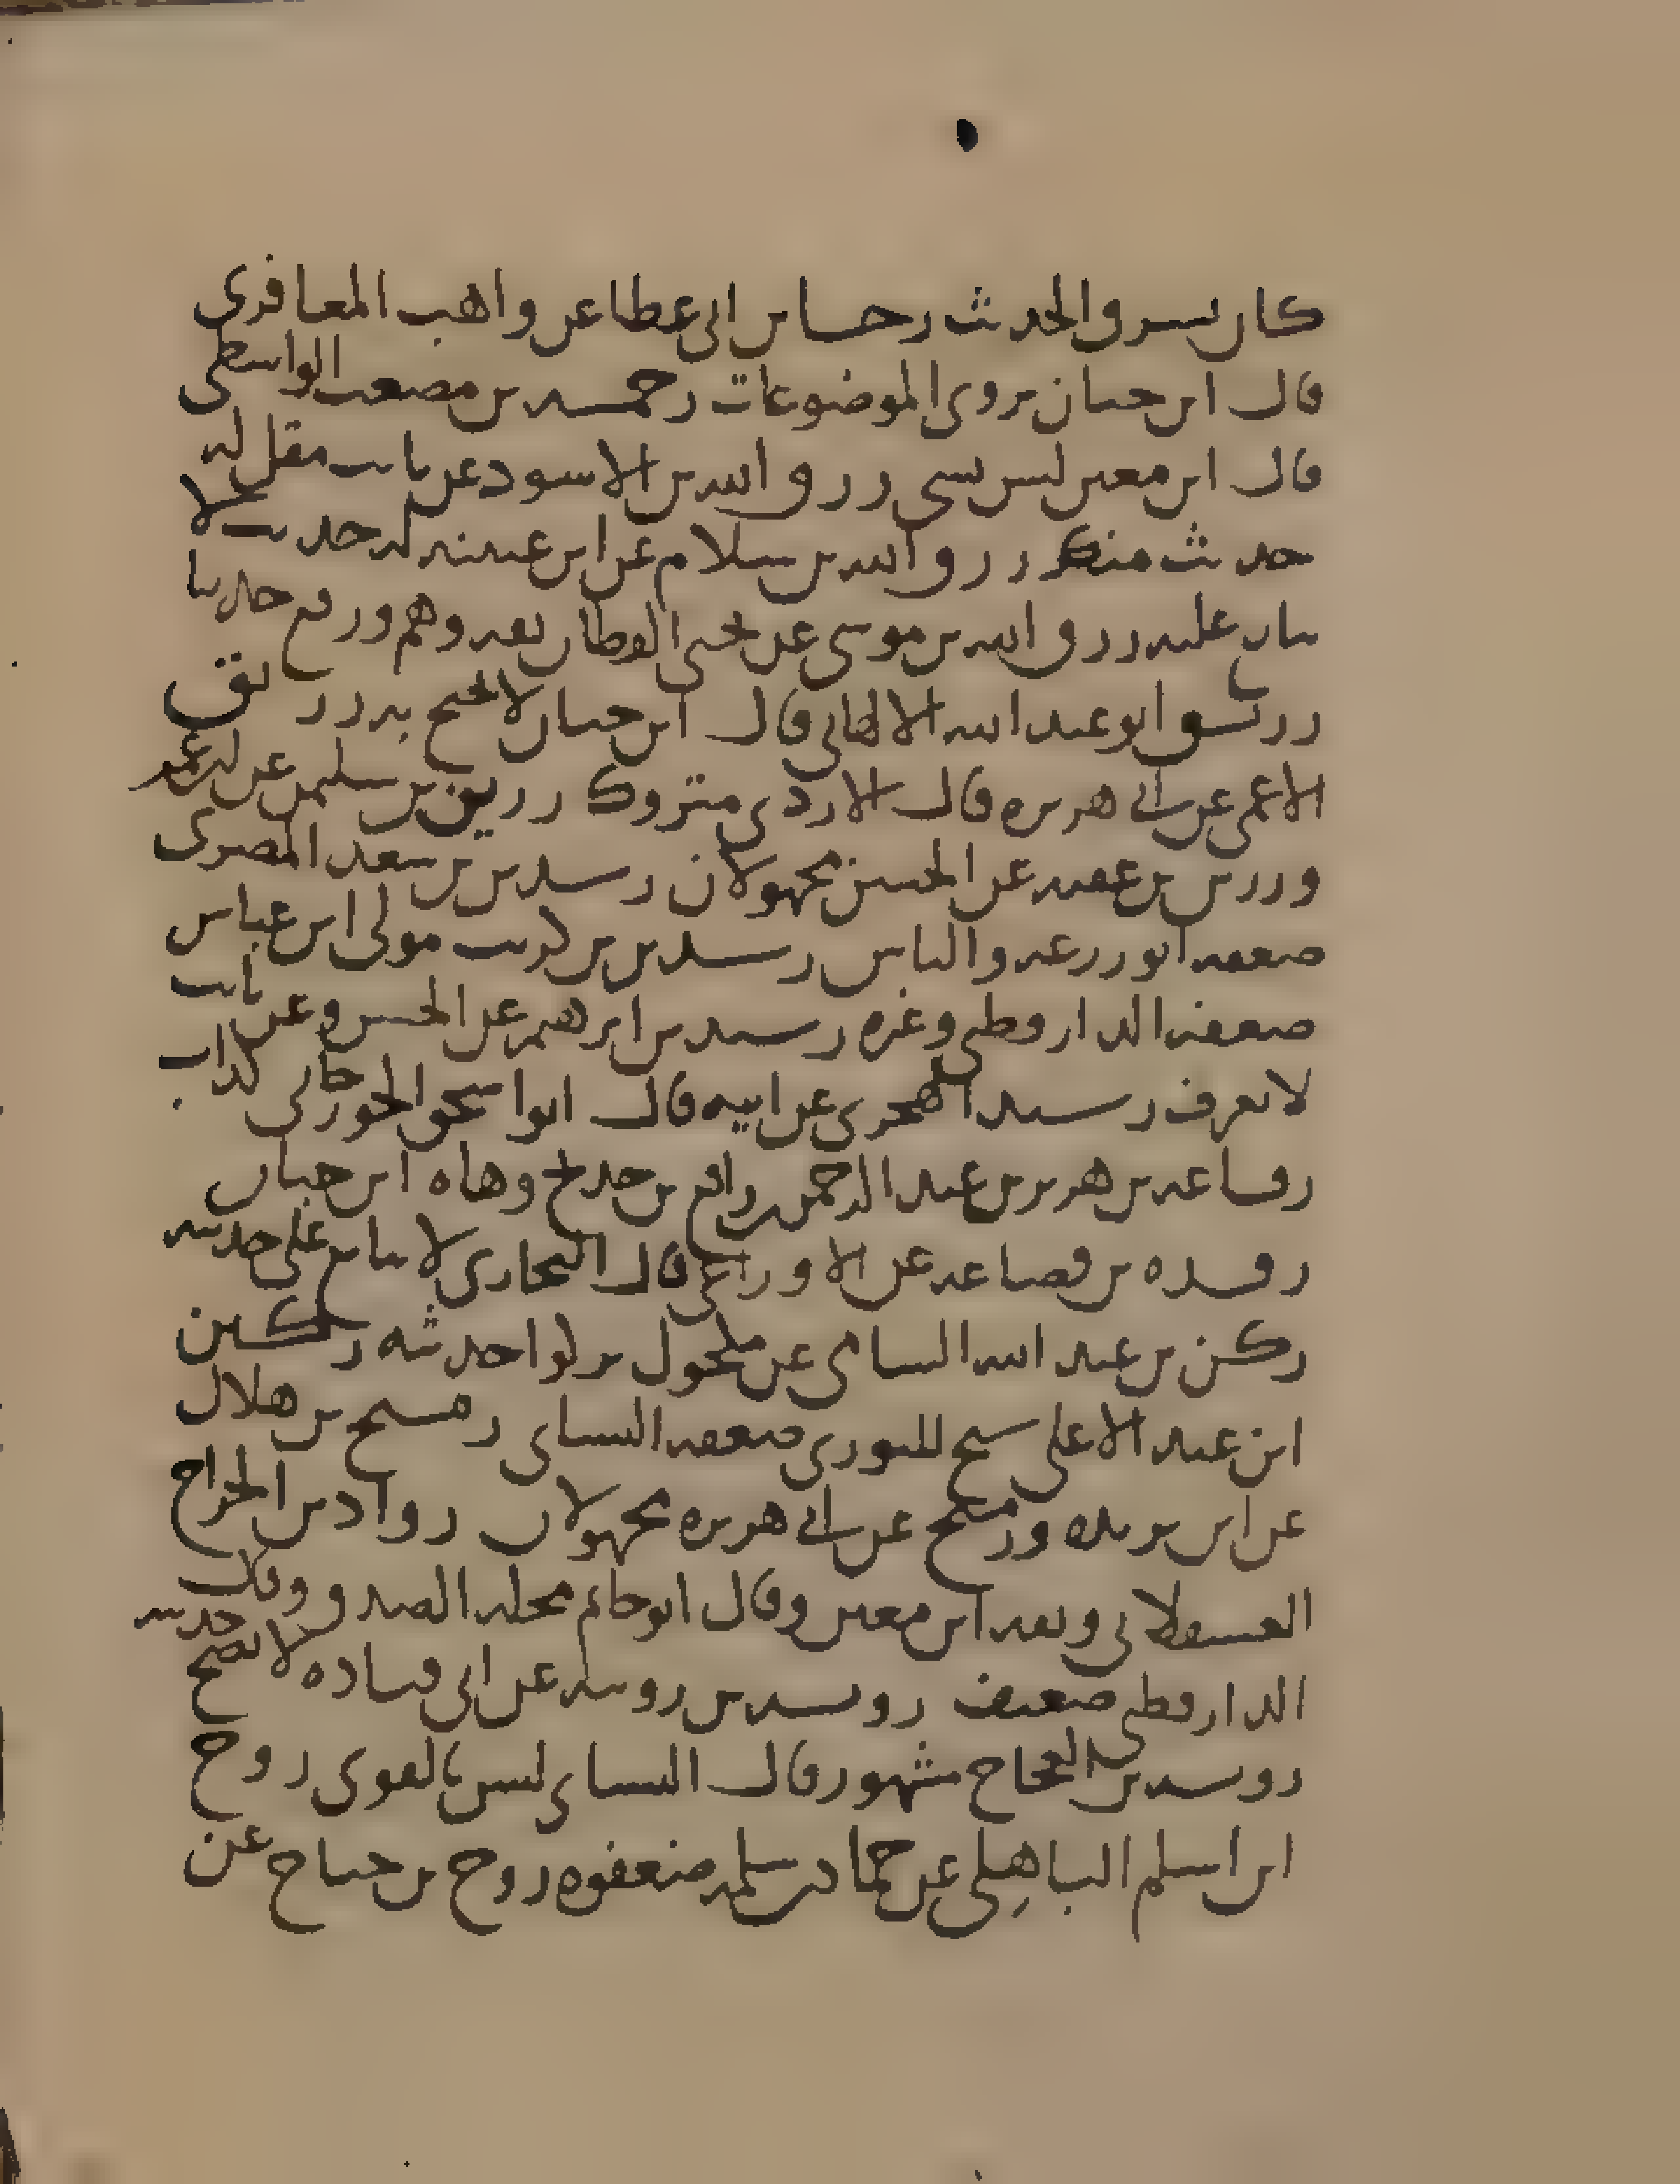 كان يسرق الحديث رجا بن ابي عطا عن واهب المعافري
قال ابن حبان يروي الموضوعات رحمه بن مصعب الواسطي
قال ابن معين ليس بشي رزق الله بن الاسود عن ثابت مقل له
حديث منكر رزق الله بن سلام عن ابن عيينه له حديث لا
يتابع عليه رزق الله بن موسى عن يحيى القطان ثقه وهم ورفع حديثا
رزيق ابو عبد الله الالهاني قال ابن حبان لا يحتج به رزيق
الاعمى عن ابي هريره قال الازدي متروك رزين بن سليمن عن ابن عمر
ورزين بن عقبه عن الحسن مجهولان رشدين بن سعد المصري
ضعفه ابو زرعه والناس رشدين بن كريب مولى ابن عباس
ضعفه الدارقطني وغيره رشيد بن ابرهيم عن الحسن وعن ثابت
لا يعرف رشيد الهجري عن ابيه قال ابو اسحق الجوزجاني كذاب
رفاعه بن هرير بن عبد الرحمن بن رافع بن خديج وهاه ابن حبان
رفده بن قضاعه عن الاوزاعي قال البخاري لا يتابع على حديثه
ركن بن عبد الله الشامي عن مكحول تركوا حديثه ركين
ابن عبد الاعلى شيخ للثوري ضعفه النساي رميح بن هلال
عن ابن بريده ورميح عن ابي هريره مجهولان رواد بن الجراح
العسقلاني وثقه ابن معين وقال ابو حاتم محله الصدق وقال
الدارقطني ضعيف رويد بن رويبه عن ابي قتاده لا يصح حديثه
رويد بن الحجاج مشهور قال النساي ليس بالقوي روح
ابن اسلم الباهلي عن حماد بن سلمه ضعفوه روح بن جناح عن